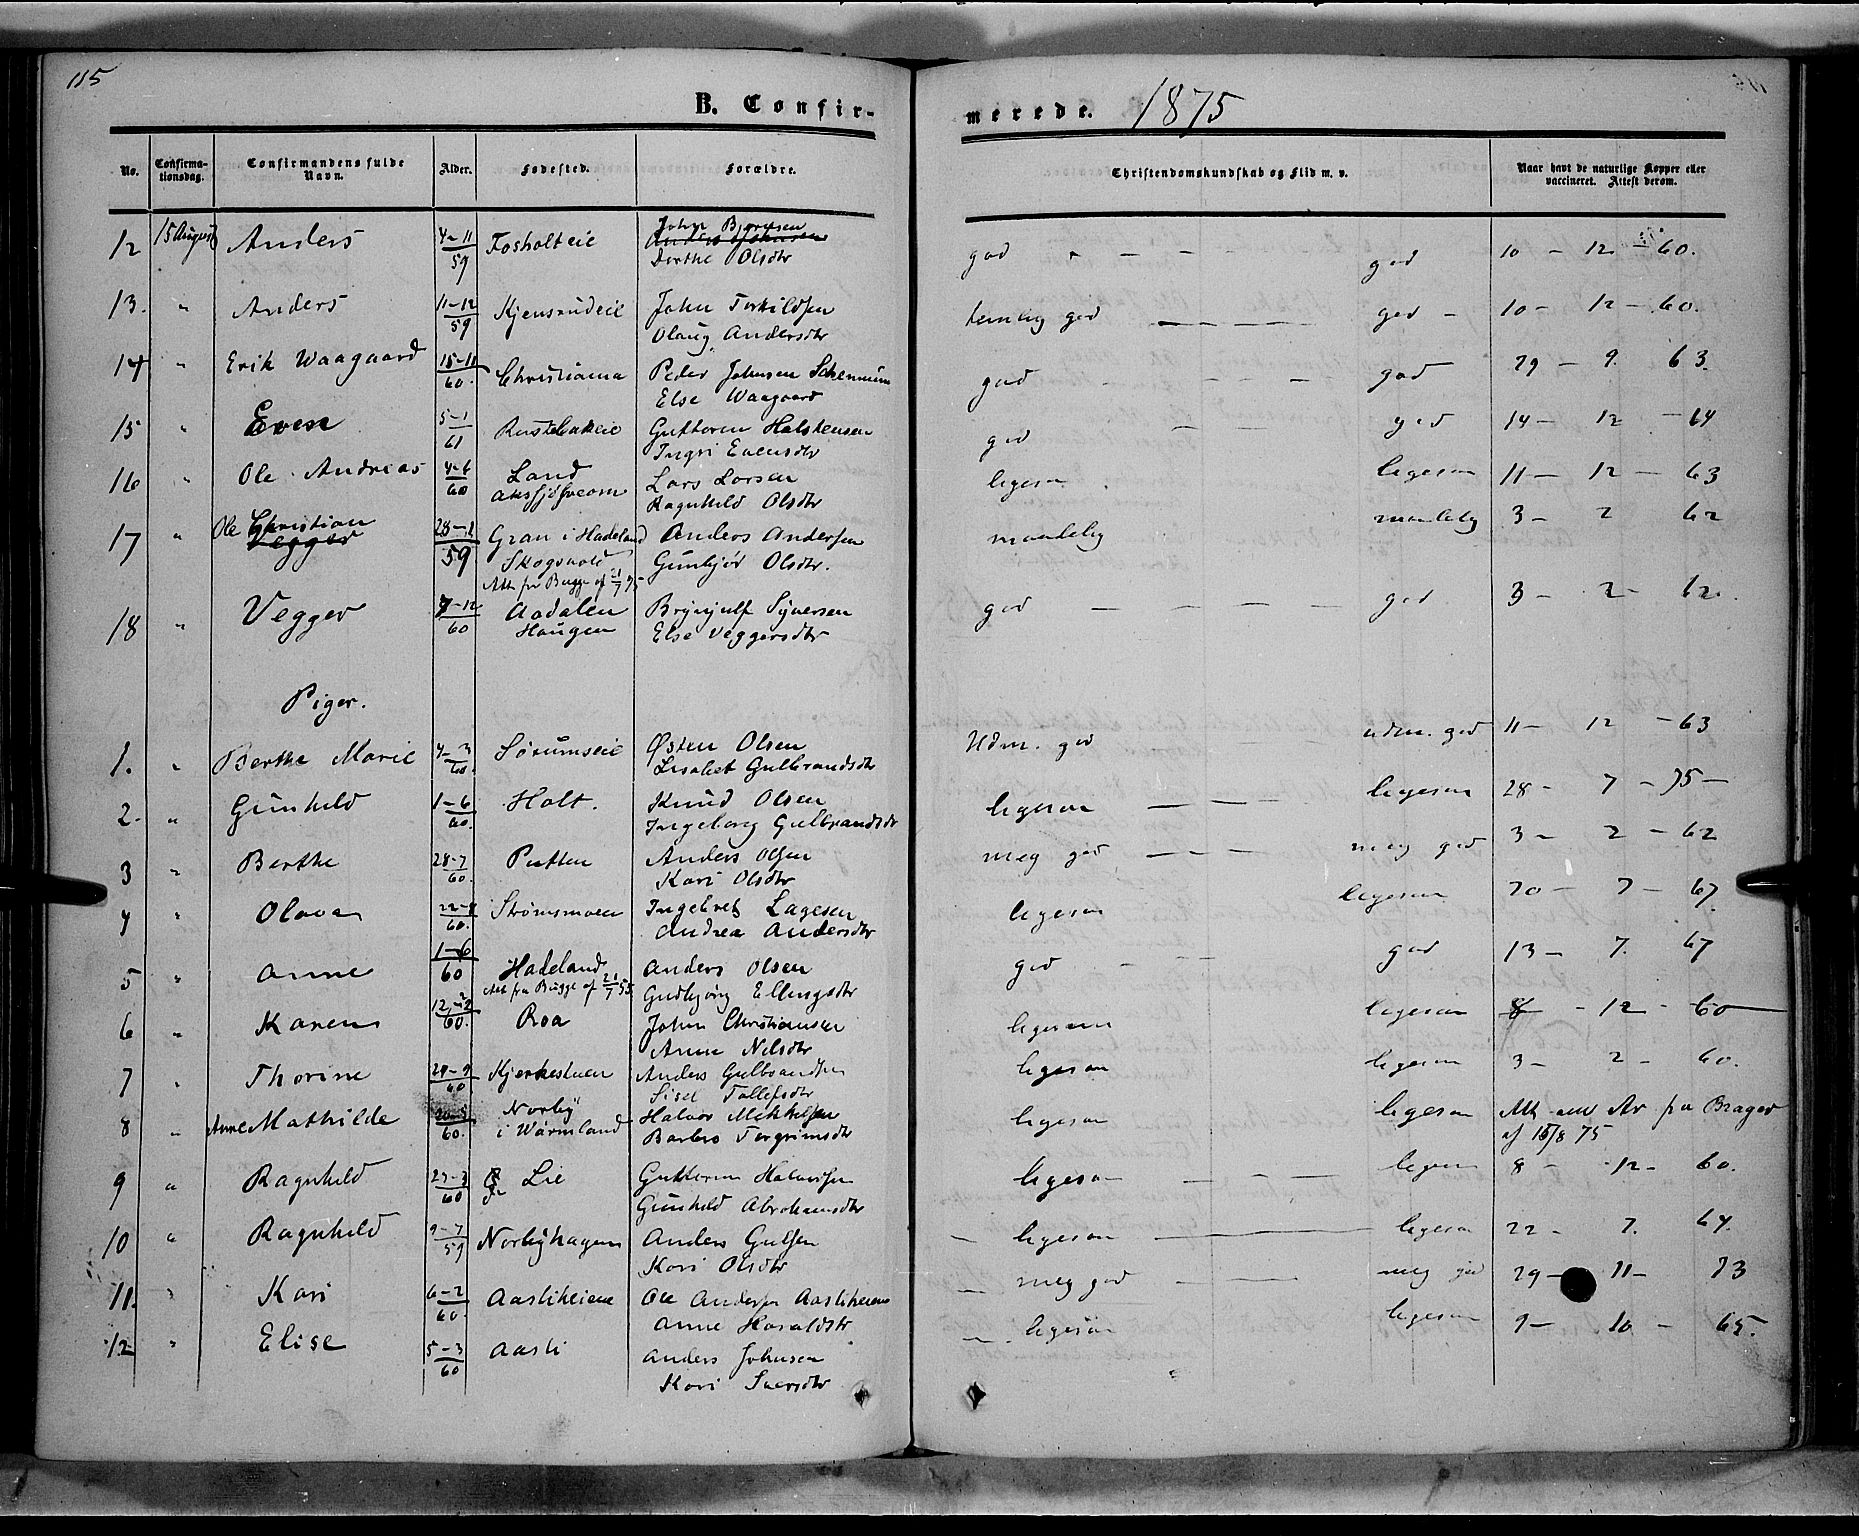 115
B. Confir-
merede. 1875
No.
Confirma-
tionsdag.
Confirmandens fulde
Navn.
Alder.
Fødested.
Forældre.
Christendomskundskab og Flid m. v.
Naar havt de naturlige Kopper eller
vaccineret. Attest derom.
12 15 August Anders 4-11/59 Fosholteie John
Anders Johnsen
Dorthe Olsdtr god god 10 - 12 - 60.
13. " Anders 11-12/59 Kjensrudeie John Torkildsen
Olaug Andersdtr temlig god god 10 - 12 - 60.
14 " Erik Waagaard 15-11/60. Christiania Peder Johnsen
Else Waagaard god god 29 - 9. 63.
15 " Even 5-1/61 Guttorm Halstensen
Ingri Evensdtr god god 14 - 12 - 64
16 " Ole Andreas 4-6/60 Land
Lars Larsen
Ragnhild Olsdtr ligesaa ligesaa 11 - 12 - 63
17 " Ole Christian
Vegger 28-12/59 Gran i Hadeland
Skogvold
Att. fra Bugge af 21/7 75 Anders Andersen
Gunbjør Olsdtr. maadelig maadelig 3 - 2 62
18 " Vegger 7-12/60 Aadalen
Haugen Brynjulf Syversen
Else Veggersdtr god god 3 - 2 - 62.
Piger.
1. " Berthe Marie 4-3/60. Sørumseie Østen Olsen
Lisabet Gulbrandsdtr Udm. god udm. god 11 - 12 - 63
2. " Gunhild 1-6/60. Holt. Knud Olsen
Ingeborg Gulbrandsdtr ligesaa ligesaa 28 - 7 - 75 -
3 " Berthe 28-7/60. Putten Anders Olsen
Kari Olsdtr meg god meg god 3 - 2 - 62
4 " Olava 60. Strømsmoen Ingebret Lagesen
Andrea Andersdtr ligesaa ligesaa 20 - 7 - 67
5 " Anne 1-6/60 Hadeland
Att. fra Bugge af 21/7 Anders Olsen
Gudbjørg Ellingsdtr god god 13 - 7. 67
6 " Karen 60. Roa John Christiansen
Anne Nilsdtr ligesaa ligesaa 8 - 12 - 60
7 " Thorine 60 Kjerkestuen Anders Gulbrandsen
Sisel Tollefsdtr ligesaa ligesaa 3 - 2 - 60.
8 " Anne Mathilde 20-5/60. Norby
i Wärmland Halvor Mikkelsen
Barbro Torgrimsdtr ligesaa ligesaa Att. fra Brager
af 15/8 75
9 " Ragnhild 60 Lie Guttorm Halvorsen
Gunhild Abrahamsdtr ligesaa ligesaa 8 - 12 - 60.
10 " Ragnhild 9-7/59 Norbyhagen Anders Gulsen
Kari Olsdtr ligesaa ligesaa 22 - 7. 64.
11. " Kari 6-2/60. Aasliheiene Ole Andersen Aasliheiene
Anne Haraldsdtr meg god meg god 29 - 11 - 73
12 " Elise 5-3/60 Aasli Anders Johnsen
Kari Iversdtr ligesaa ligesaa 9 - 10 - 65.